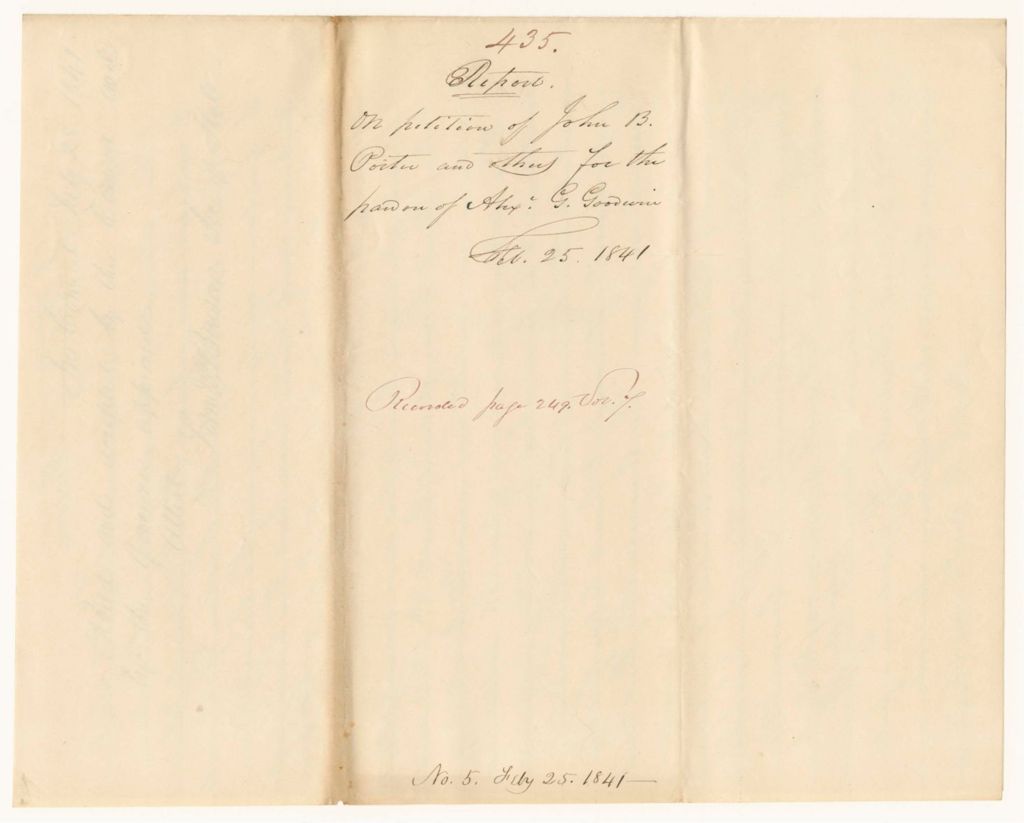 435.
Report.
On petition of John B.
Porter and others for the
pardon of Alexr. G. Goodwin
Feb. 25. 1841
Recorded page 249. Vol. 7.
No. 5. Feby 25. 1841